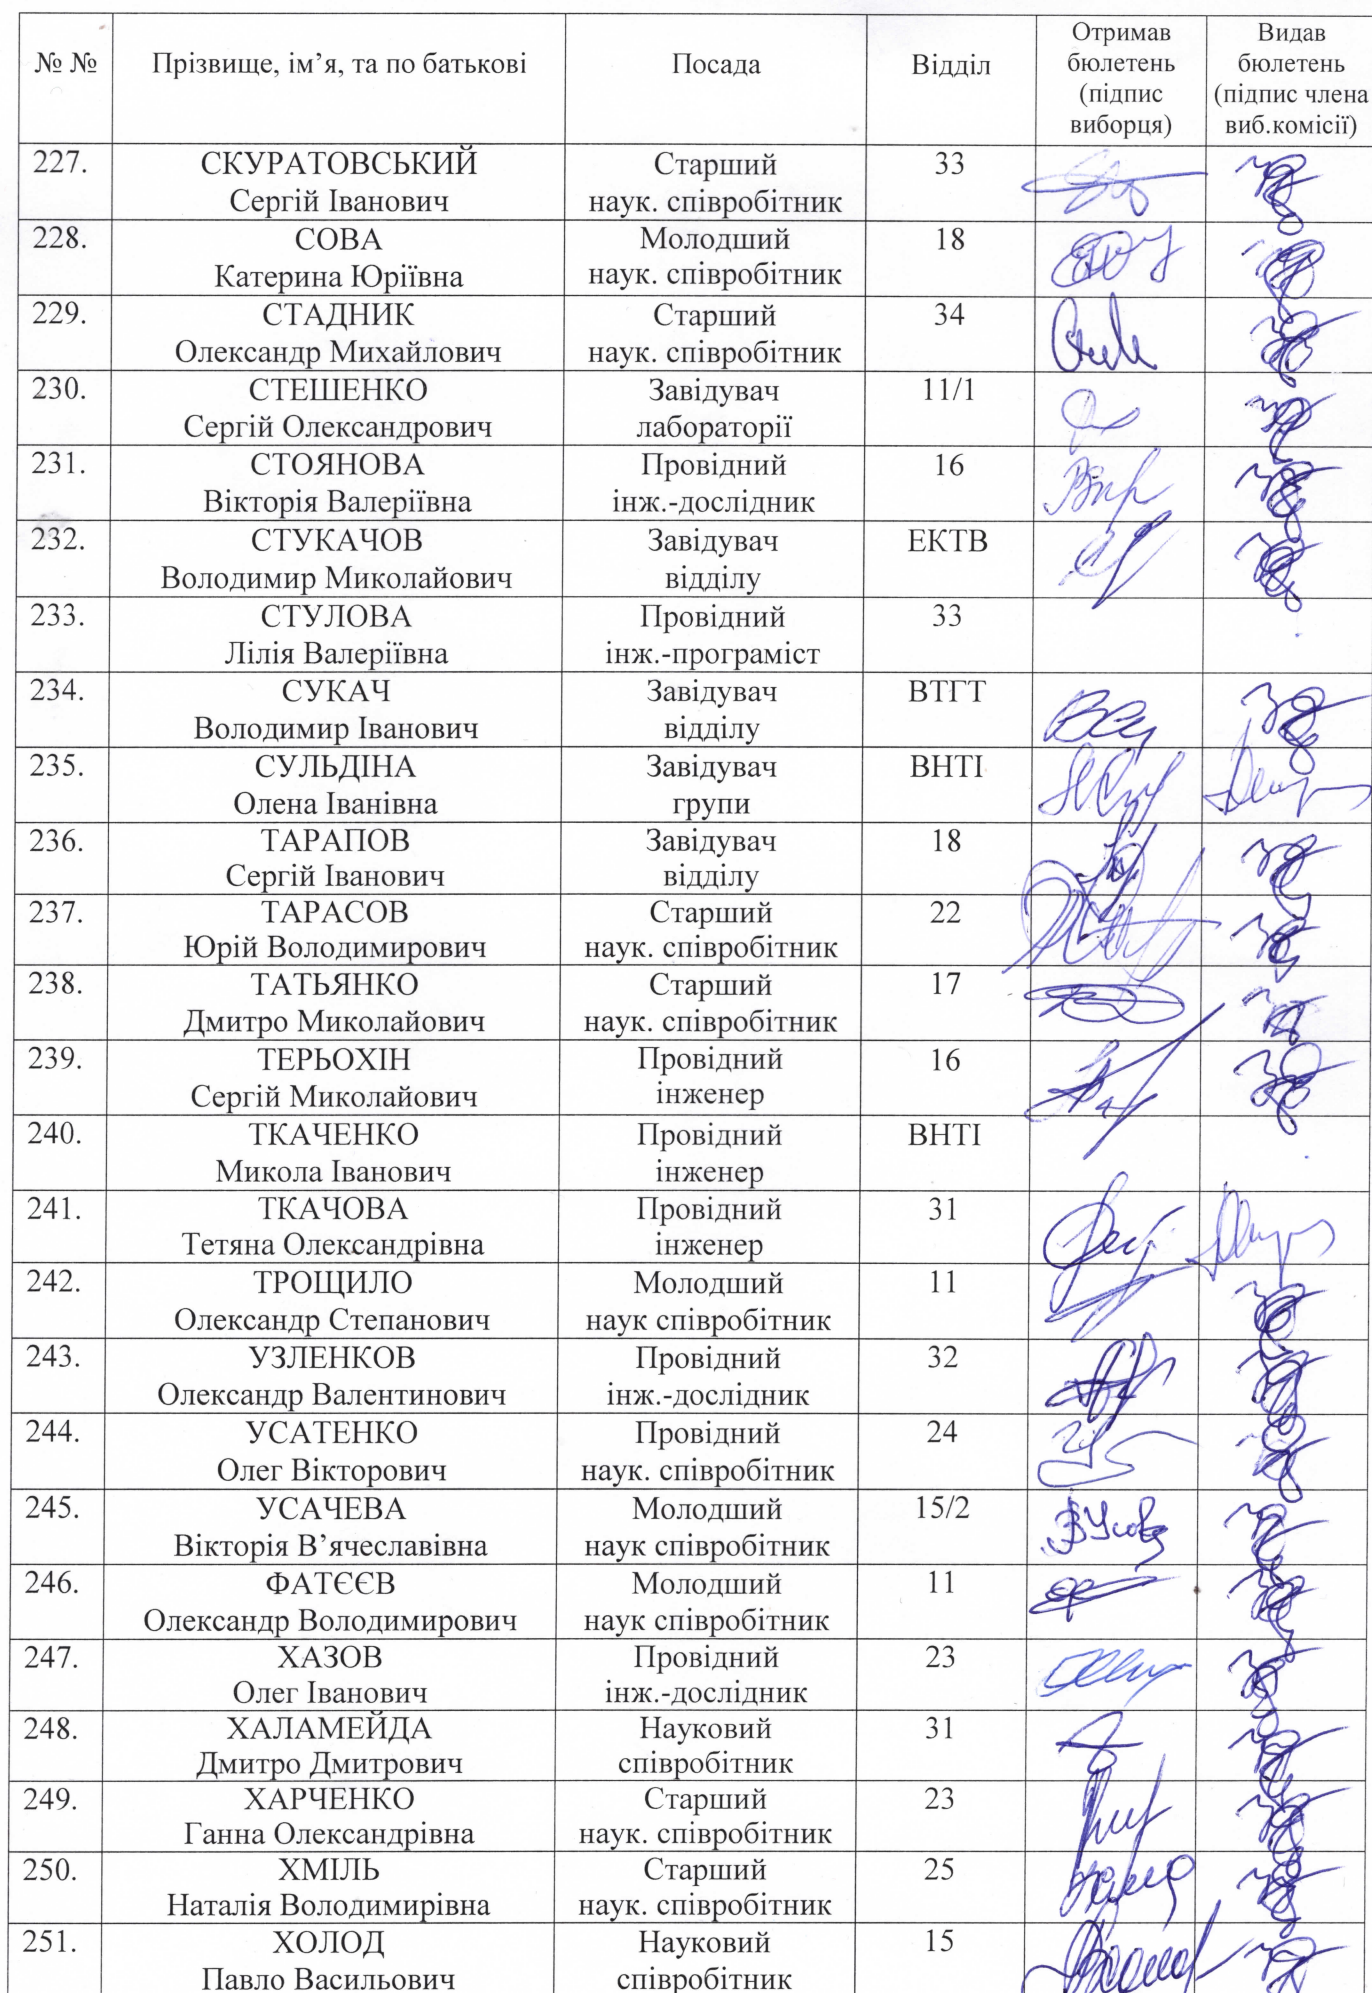 № №
Прізвище, ім’я, та по батькові
Посада
Відділ
Отримав
бюлетень
(підпис
виборця)
Видав
бюлетень
(підпис члена
виб.комісії)
227.
СКУРАТОВСЬКИЙ
Сергій Іванович
Старший
наук. співробітник
33
228.
СОВА
Катерина Юріївна
Молодший
наук. співробітник
18
229.
СТАДНИК
Олександр Михайлович
Старший
наук. співробітник
34
230.
СТЕШЕНКО
Сергій Олександрович
Завідувач
лабораторії
11/1
231.
СТОЯНОВА
Вікторія Валеріївна
Провідний
інж.-дослідник
16
232.
СТУКАЧОВ
Володимир Миколайович
Завідувач
відділу
ЕКТВ
233.
СТУЛОВА
Лілія Валеріївна
Провідний
інж.-програміст
33
234.
СУКАЧ
Володимир Іванович
Завідувач
відділу
ВТГТ
235.
СУЛЬДІНА
Олена Іванівна
Завідувач
групи
ВНТІ
236.
ТАРАПОВ
Сергій Іванович
Завідувач
відділу
18
237.
ТАРАСОВ
Юрій Володимирович
Старший
наук. співробітник
22
238.
ТАТЬЯНКО
Дмитро Миколайович
Старший
наук. співробітник
17
239.
ТЕРЬОХІН
Сергій Миколайович
Провідний
інженер
16
240.
ТКАЧЕНКО
Микола Іванович
Провідний
інженер
ВНТІ
241.
ТКАЧОВА
Тетяна Олександрівна
Провідний
інженер
31
242.
ТРОЩИЛО
Олександр Степанович
Молодший
наук співробітник
11
243.
УЗЛЕНКОВ
Олександр Валентинович
Провідний
інж.-дослідник
32
244.
УСАТЕНКО
Олег Вікторович
Провідний
наук. співробітник
24
245.
УСАЧЕВА
Вікторія В’ячеславівна
Молодший
наук співробітник
15/2
246.
ФАТЄЄВ
Олександр Володимирович
Молодший
наук співробітник
11
247.
ХАЗОВ
Олег Іванович
Провідний
інж.-дослідник
23
248.
ХАЛАМЕЙДА
Дмитро Дмитрович
Науковий
співробітник
31
249.
ХАРЧЕНКО
Ганна Олександрівна
Старший
наук. співробітник
23
250.
ХМІЛЬ
Наталія Володимирівна
Старший
наук. співробітник
25
251.
ХОЛОД
Павло Васильович
Науковий
співробітник
15